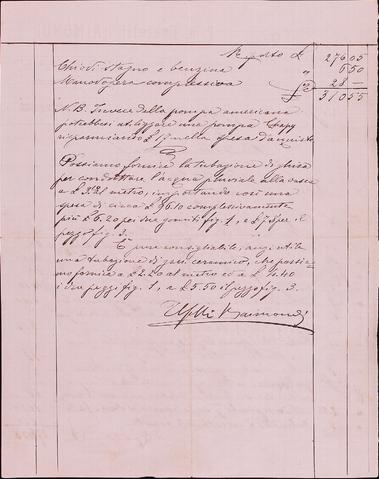 Riporto £ 276.05
Chiodi stagno e benzina " 6.50
Manodopera complessiva " 28 —
£ 310.55
N.B. Invece della pompa americana
potrebbesi utilizzare una pompa
risparmiando £ nella spesa d'acquisto
Possiamo fornire la tubazione di ghisa
per condottare l'acqua pluviale alla vasca
a £ 3.21 metro, importando così una
spesa di circa £ 76.10 complessivamente
più £ 6.20 per due gomiti fig. 1, a £ 7.58 per il
pezzo fig. 3.
È pure consigliabile, anzi utile
una tubazione di gres ceramico, che possia-
mo fornire a £ 2.20 al metro ed a £ 4.40
i due pezzi fig. 1, a £ 5.50 il pezzo fig. 3.
Raimondi